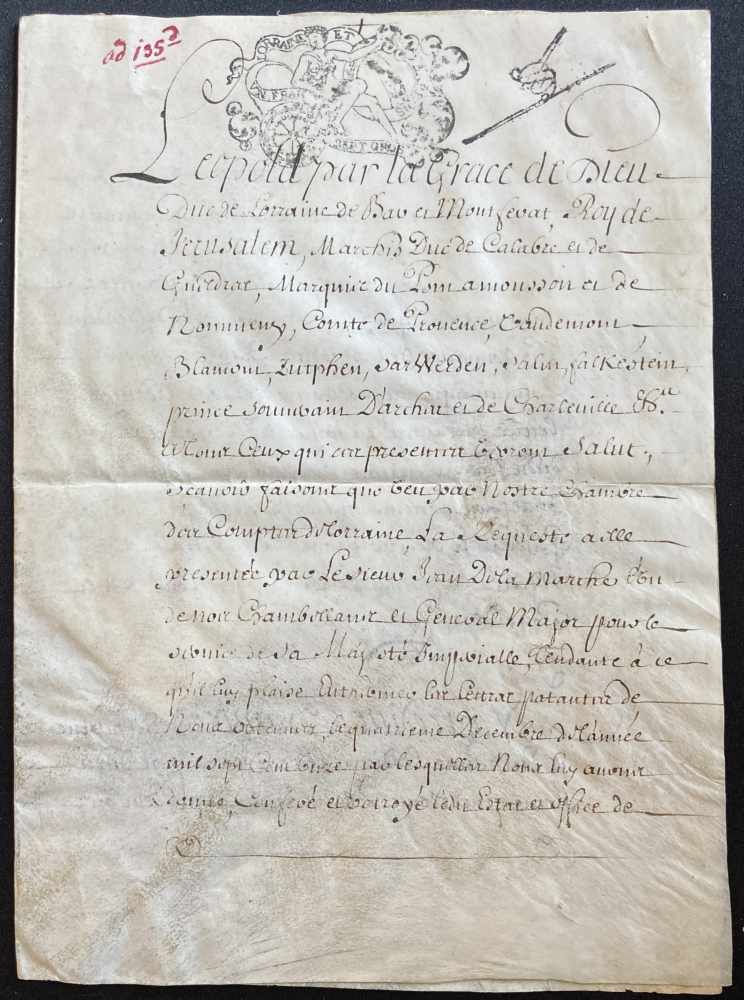 ad 135d
LORRAINE ET
Leopold par la Grace de Dieu
Duc de Lorraine de Bar et Montferat, Roy de
Jerusalem, Marchis Duc de Calabre et de
Gueldres, Marquis du Pontamousson et de
Nommeny, Comte de Provence, Vaudemont,
Blamont, Zutphen, Sarwerden, Salm, falkestein,
prince Souverain D'arches et de Charleville &a.
A tous Ceux qui ces presentes verront Salut,
Scavoir faisons que Veu par Nostre Chambre
des Comptes de Lorraine, La Requeste a elle
presentée par Le Sieur Jean De la Marche l'un
de nos Chambellans et General Major pour le
service de Sa Majesté Imperialle, Tendante à ce
qu'il luy plaise Entheriner les lettres patantes de
Nous obtenues, le quatrieme Decembre de l'année
mil sept cent unze par lesquelles Nous luy avons
Donné, Conferé et octroyé ledit Estat et office de